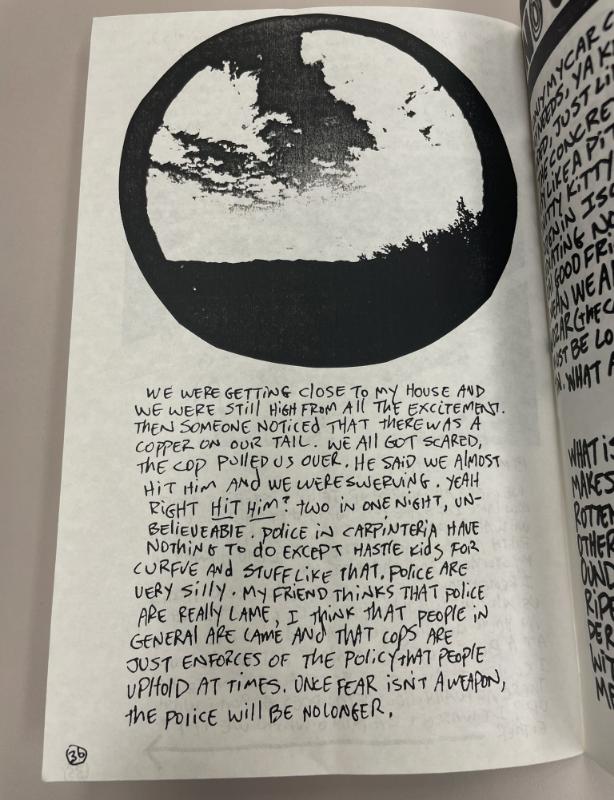 WE WERE GETTING CLOSE TO MY HOUSE AND
WE WERE STILL HIGH FROM ALL THE EXCITEMENT.
THEN SOMEONE NOTICED THAT THERE WAS A
COPPER ON OUR TAIL. WE ALL GOT SCARED,
THE COP PULLED US OVER. HE SAID WE ALMOST
HIT HIM AND WE WERE SWERVING. YEAH
RIGHT HIT HIM? TWO IN ONE NIGHT, UN-
BELIEVEABLE. POLICE IN CARPINTERIA HAVE
NOTHING TO DO EXCEPT HASTLE KIDS FOR
CURFUE AND STUFF LIKE THAT. POLICE ARE
VERY SILLY. MY FRIEND THINKS THAT POLICE
ARE REALLY LAME, I THINK THAT PEOPLE IN
GENERAL ARE LAME AND THAT COPS ARE
JUST ENFORCES OF THE POLICY THAT PEOPLE
UPHOLD AT TIMES. ONCE FEAR ISN'T A WEAPON,
THE POLICE WILL BE NO LONGER.
36
MY CAR
NEEDS, YA
JUST
LIKE A
KITTY
IN
GOOD
WE
(THE
BE
WHAT
WHAT IS
MAKES
ROTTEN
OTHER